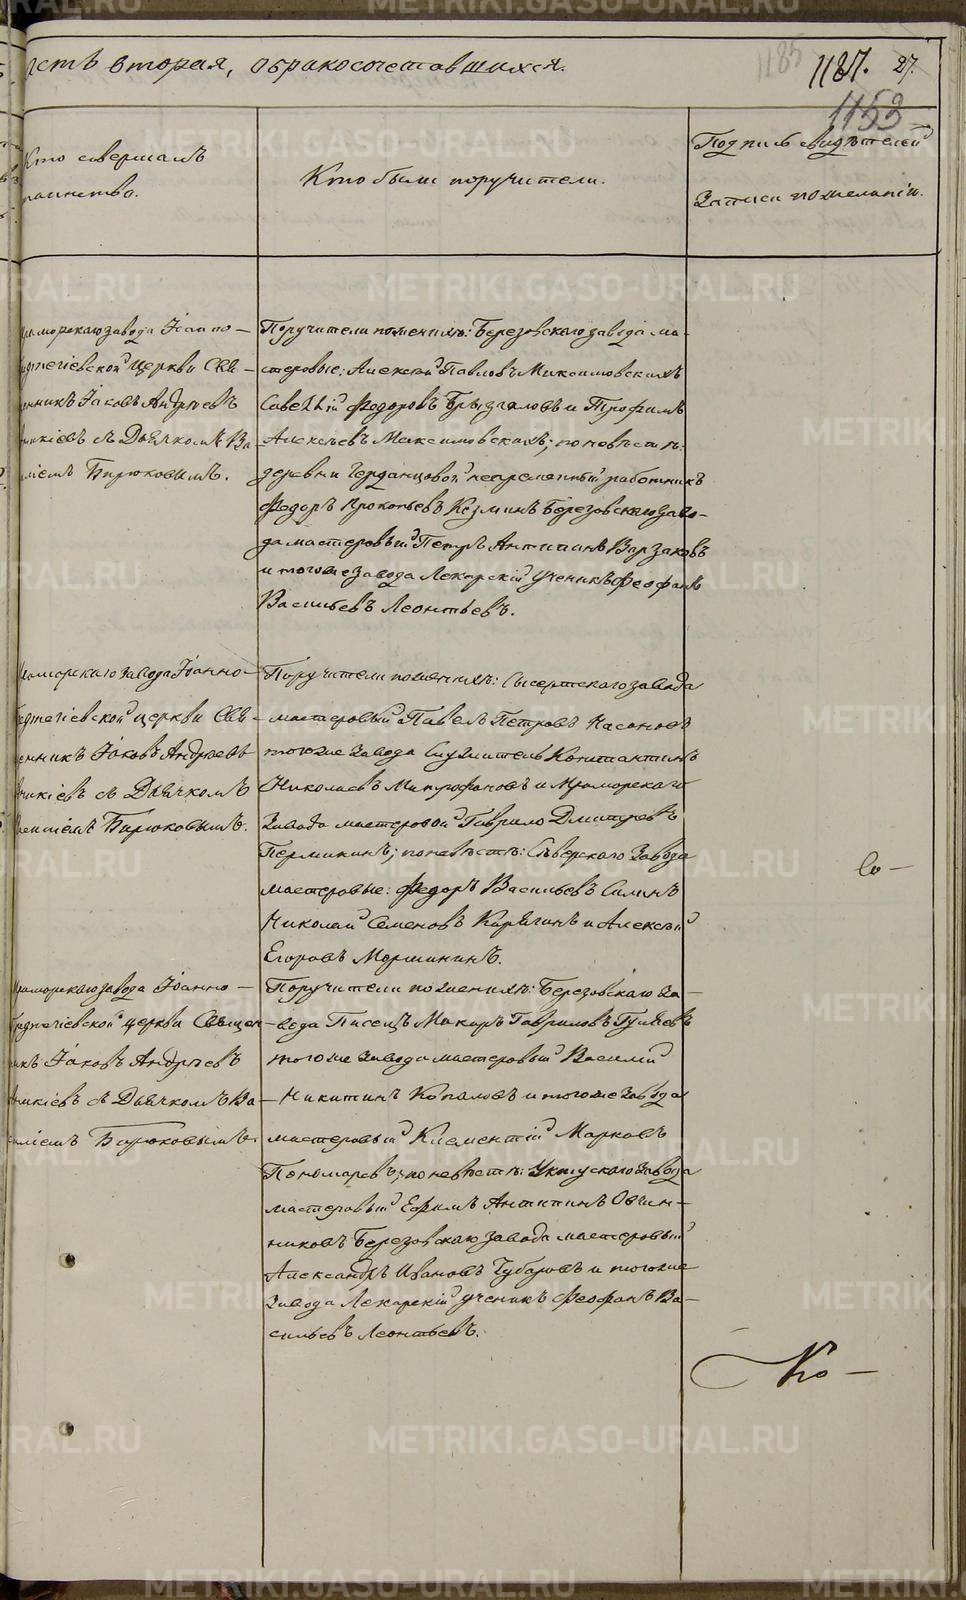 асть вторая, о бракосочетавшихся.
1185
1187. 27.
1153
Кто совершалъ
таинство.
Кто были поручители.
Подпись свидѣтелей
Записи по желанію.
Мраморскаго завода Іоанно-
предтечіевской церкви Свя-
щенникъ Іаковъ Андреевъ
съ Дьячкомъ Ва-
силіемъ Бирюковымъ.
Поручители по женихѣ: Березовскаго завода ма-
стеровые: Алексѣй Павловъ Максимовскихъ
Савелій Федоровъ Брызгаловъ и Трофимъ
Алексѣевъ Максимовскихъ; по невѣстѣ:
деревни непремѣнный работникъ
Федоръ Прокопьевъ Козминъ Березовскаго заво-
да мастеровый Петръ Антипинъ Варзаковъ
и тогоже завода Лекарскій ученикъ Феофанъ
Васильевъ Леонтьевъ.
Мраморскаго завода Іоанно-
предтечіевской церкви Свя-
щенникъ Іаковъ Андреевъ
съ Дьячкомъ
Василіемъ Бирюковымъ.
Поручители по женихѣ: Сысертскаго завода
мастеровый Павелъ Петровъ Насоновъ
тогоже завода Служитель Константинъ
Николаевъ Митрофановъ и Мраморскаго
Завода мастеровой Гаврило Дмитревъ
Пермикинъ; по невѣстѣ: Сѣверскаго Завода
мастеровые: Федоръ Васильевъ Силинъ
Николай Семеновъ Карягинъ и Алексѣй
Егоровъ Моршининъ.
Со-
Мраморскаго завода Іоанно-
предтечіевской церкви Священ-
никъ Іаковъ Андреевъ
съ Дьячкомъ Ва-
силіемъ Бирюковымъ.
Поручители по женихѣ: Березовскаго За-
вода Писецъ Макаръ Гавриловъ Гуляевъ
тогоже завода мастеровый Василій
Никитинъ Копаловъ и тогоже завода
мастеровый Климентій Марковъ
Пономаревъ; по невѣстѣ: Уктускаго Завода
мастеровый Ефимъ Антипинъ Овчин-
никовъ Березовскаго завода мастеровый
Александръ Ивановъ Чубаровъ и тогоже
Завода Лекарскій ученикъ Феофанъ Ва-
сильевъ Леонтьевъ.
Ко-
METRIKI.GASO-URAL.RU